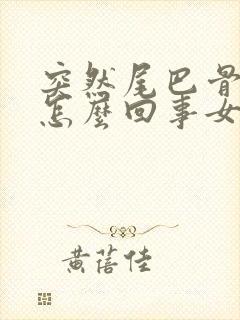 突然尾巴骨
怎麼回事女
黄蓓佳